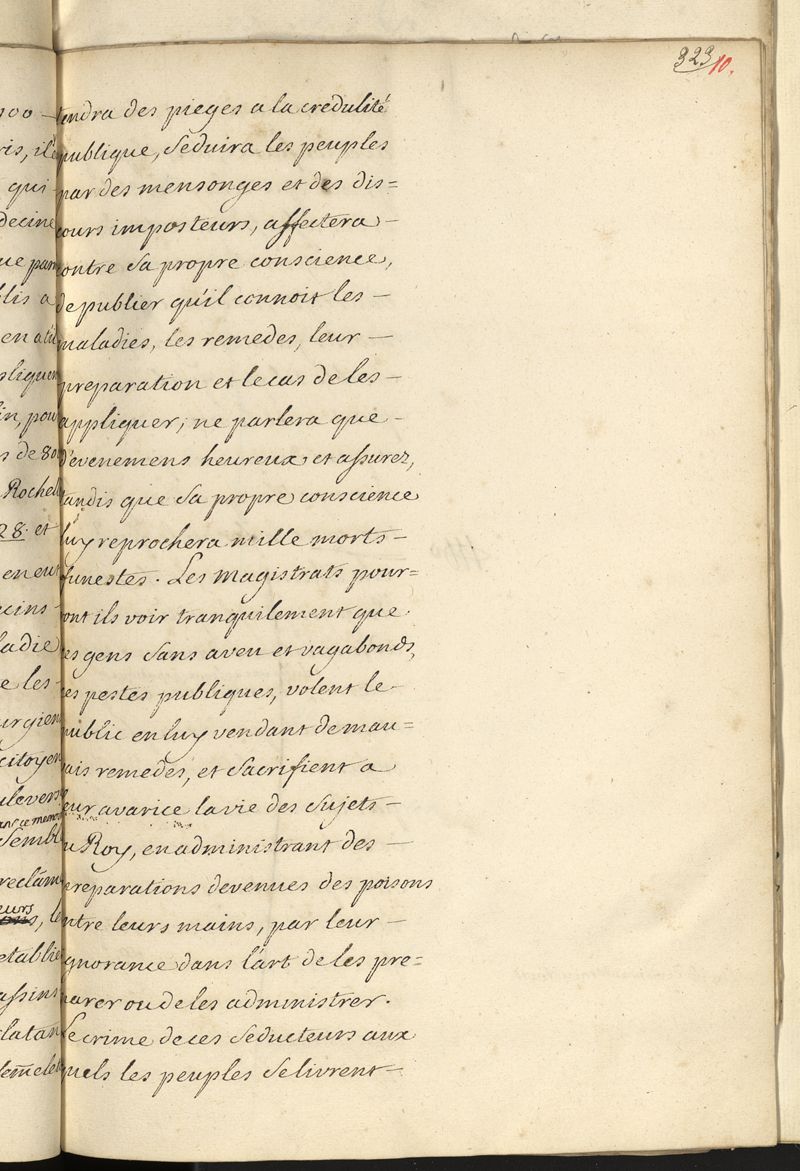 323 10.
tendra des pieges a la credulité
publique, seduira les peuples
par des mensonges et des dis=
cours imposteurs, affectera -
contre sa propre conscience,
de publier qu'il connoit les -
maladies, les remedes, leur -
preparation et le cas de les -
appliquer; ne parlera que -
d'evenemens heureux et assurez,
tandis que sa propre conscience
luy reprochera mille morts -
funestes. Les magistrats pour=
ont ils voir tranquilement que
es gens sans aveu et vagabonds,
es pestes publiques, volent le
public en luy vendant de mau=
ais remedes, et sacrifient a
eur avarice la vie des sujets -
u Roy, en administrant des -
reparations devenues des poisons
ntre leurs mains, par leur -
gnorance dans l'art de les pre=
parer ou de les administrer.
Le crime de ces seducteurs aux
quels les peuples se livrent -